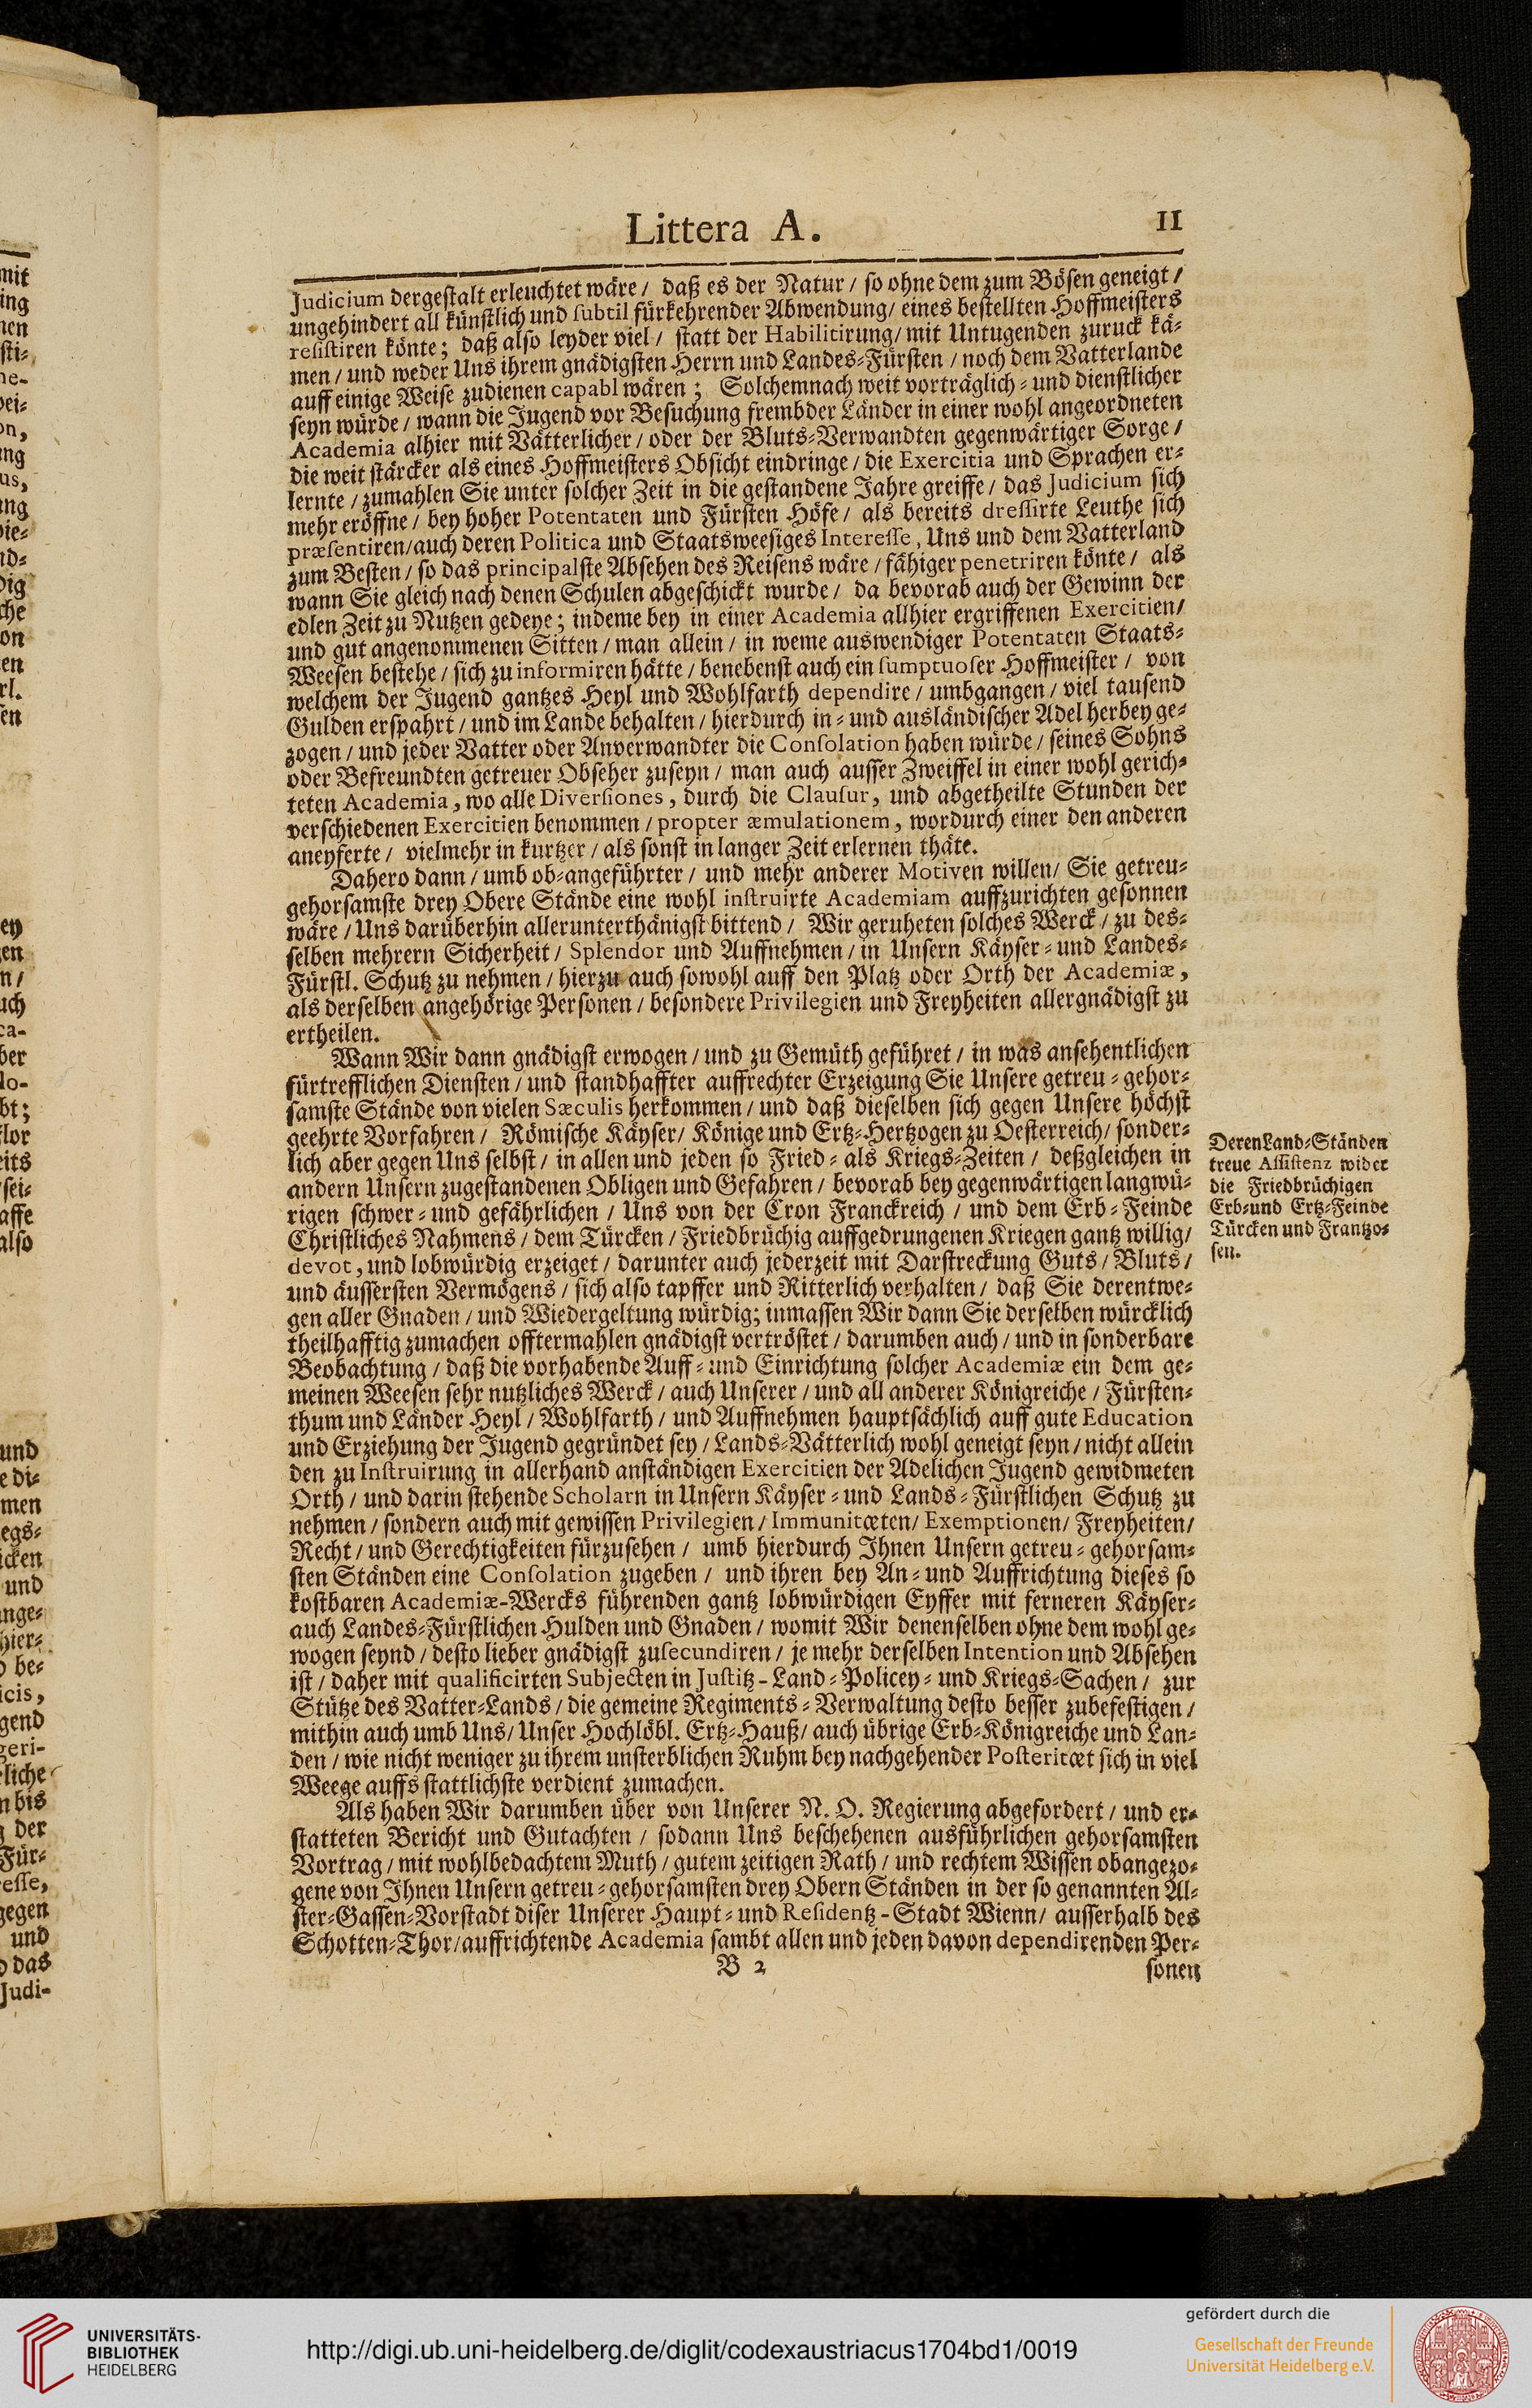 Littera A. 11
Judicium dergestalt erleuchtet wäre / daß es der Natur / so ohne dem zum Bösen geneigt /
ungehindert all künstlich und subtil fürkehrender Abwendung / eines bestellten Hoffmeisters
resistiren könte; daß also leyder viel / statt der Habilitirung / mit Untugenden zuruck kä-
men / und weder Uns ihrem gnädigsten Herrn und Landes-Fürsten / noch dem Vatterlande
auff einige Weise zudienen capabl wären; Solchemnach weit vorträglich- und dienstlicher
seyn würde / wann die Jugend vor Besuchung frembder Länder in einer wohl angeordneten
Academia alhier mit Vätterlicher / oder der Bluts-Verwandten gegenwärtiger Sorge /
die weit stärcker als eines Hoffmeisters Obsicht eindringe / die Exercitia und Sprachen er-
lernte / zumahlen Sie unter solcher Zeit in die gestandene Jahre greiffe / das Judicium sich
mehr eröffne / bey hoher Potentaten und Fürsten Höfe / als bereits dressirte Leuthe sich
præsentiren / auch deren Politica und Staatsweesiges Interesse, Uns und dem Vatterland
zum Besten / so das principalste Absehen des Reisens wäre / fähiger penetriren könte / als
wann Sie gleich nach denen Schulen abgeschickt wurde / da bevorab auch der Gewinn der
edlen Zeit zu Nutzen gedeye; indeme bey in einer Academia allhier ergriffenen Exercitien /
und gut angenommenen Sitten / man allein / in weme auswendiger Potentaten Staats-
Weesen bestehe / sich zu informiren hätte / benebenst auch ein sumptuoser Hoffmeister / von
welchem der Jugend gantzes Heyl und Wohlfarth dependire / umbgangen / viel tausend
Gulden erspahrt / und im Lande behalten / hierdurch in- und ausländischer Adel herbey ge-
zogen / und jeder Vatter oder Anverwandter die Consolation haben würde / seines Sohns
oder Befreundten getreuer Obseher zuseyn / man auch ausser Zweiffel in einer wohl gerich-
teten Academia, wo alle Diversiones, durch die Clausur, und abgetheilte Stunden der
verschiedenen Exercitien benommen / propter æmulationem, wordurch einer den anderen
aneyferte / vielmehr in kurtzer / als sonst in langer Zeit erlernen thäte.
Dahero dann / umb ob-angeführter / und mehr anderer Motiven willen / Sie getreu-
gehorsamste drey Obere Stände eine wohl instruirte Academiam auffzurichten gesonnen
wäre / Uns darüberhin allerunterthänigst bittend / Wir geruheten solches Werck / zu des-
selben mehrern Sicherheit / Splendor und Auffnehmen / in Unsern Käyser- und Landes-
Fürstl. Schutz zu nehmen / hierzu auch sowohl auff den Platz oder Orth der Academiæ,
als derselben angehörige Personen / besondere Privilegien und Freyheiten allergnädigst zu
ertheilen.
Wann Wir dann gnädigst erwogen / und zu Gemüth geführet / in was ansehentlichen
fürtrefflichen Diensten / und standhaffter auffrechter Erzeigung Sie Unsere getreu-gehor-
samste Stände von vielen Sæculis herkommen / und daß dieselben sich gegen Unsere höchst
geehrte Vorfahren / Römische Käyser / Könige und Ertz-Hertzogen zu Oesterreich / sonder-
lich aber gegen Uns selbst / in allen und jeden so Fried- als Kriegs-Zeiten / deßgleichen in
andern Unsern zugestandenen Obligen und Gefahren / bevorab bey gegenwärtigen langwü-
rigen schwer- und gefährlichen / Uns von der Cron Franckreich / und dem Erb-Feinde
Christliches Nahmens / dem Türcken / Friedbrüchig auffgedrungenen Kriegen gantz willig /
devot, und lobwürdig erzeiget / darunter auch jederzeit mit Darstreckung Guts / Bluts /
und äussersten Vermögens / sich also tapffer und Ritterlich verhalten / daß Sie derentwe-
gen aller Gnaden / und Wiedergeltung würdig; inmassen Wir dann Sie derselben würcklich
theilhafftig zumachen offtermahlen gnädigst vertröstet / darumben auch / und in sonderbare
Beobachtung / daß die vorhabende Auff- und Einrichtung solcher Academiæ ein dem ge-
meinen Weesen sehr nutzliches Werck / auch Unserer / und all anderer Königreiche / Fürsten-
thum und Länder Heyl / Wohlfarth / und Auffnehmen hauptsächlich auff gute Education
und Erziehung der Jugend gegründet sey / Lands-Vätterlich wohl geneigt seyn / nicht allein
den zu Instruirung in allerhand anständigen Exercitien der Adelichen Jugend gewidmeten
Orth / und darin stehende Scholarn in Unsern Käyser- und Lands-Fürstlichen Schutz zu
nehmen / sondern auch mit gewissen Privilegien / Immunitæten / Exemptionen / Freyheiten /
Recht / und Gerechtigkeiten fürzusehen / umb hierdurch Ihnen Unsern getreu-gehorsam-
sten Ständen eine Consolation zugeben / und ihren bey An- und Auffrichtung dieses so
kostbaren Academiæ-Wercks führenden gantz lobwürdigen Eyffer mit ferneren Käyser-
auch Landes-Fürstlichen Hulden und Gnaden / womit Wir denenselben ohne dem wohl ge-
wogen seynd / desto lieber gnädigst zusecundiren / je mehr derselben Intention und Absehen
ist / daher mit qualificirten Subjecten in Justitz-Land-Policey- und Kriegs-Sachen / zur
Stütze des Vatter-Lands / die gemeine Regiments-Verwaltung desto besser zubefestigen /
mithin auch umb Uns / Unser Hochlöbl. Ertz-Hauß / auch übrige Erb-Königreiche und Lan-
den / wie nicht weniger zu ihrem unsterblichen Ruhm bey nachgehender Posteritæt sich in viel
Weege auffs stattlichste verdient zumachen.
Als haben Wir darumben über von Unserer N. O. Regierung abgefordert / und er-
statteten Bericht und Gutachten / sodann Uns beschehenen ausführlichen gehorsamsten
Vortrag / mit wohlbedachtem Muth / gutem zeitigen Rath / und rechtem Wissen obangezo-
gene von Ihnen Unsern getreu-gehorsamsten drey Obern Ständen in der so genannten Al-
ster-Gassen-Vorstadt diser Unserer Haupt- und Residentz-Stadt Wienn / ausserhalb des
Schotten-Thor / auffrichtende Academia sambt allen und jeden davon dependirenden Per-
B 2 sonen
Deren Land-Ständen
treue Assistenz wider
die Friedbrüchigen
Erb- und Ertz-Feinde
Türcken und Frantzo-
sen.
UNIVERSITÄTS-
BIBLIOTHEK
HEIDELBERG
http://digi.ub.uni-heidelberg.de/diglit/codexaustriacus1704bd1/0019
gefördert durch die
Gesellschaft der Freunde
Universität Heidelberg e.V.